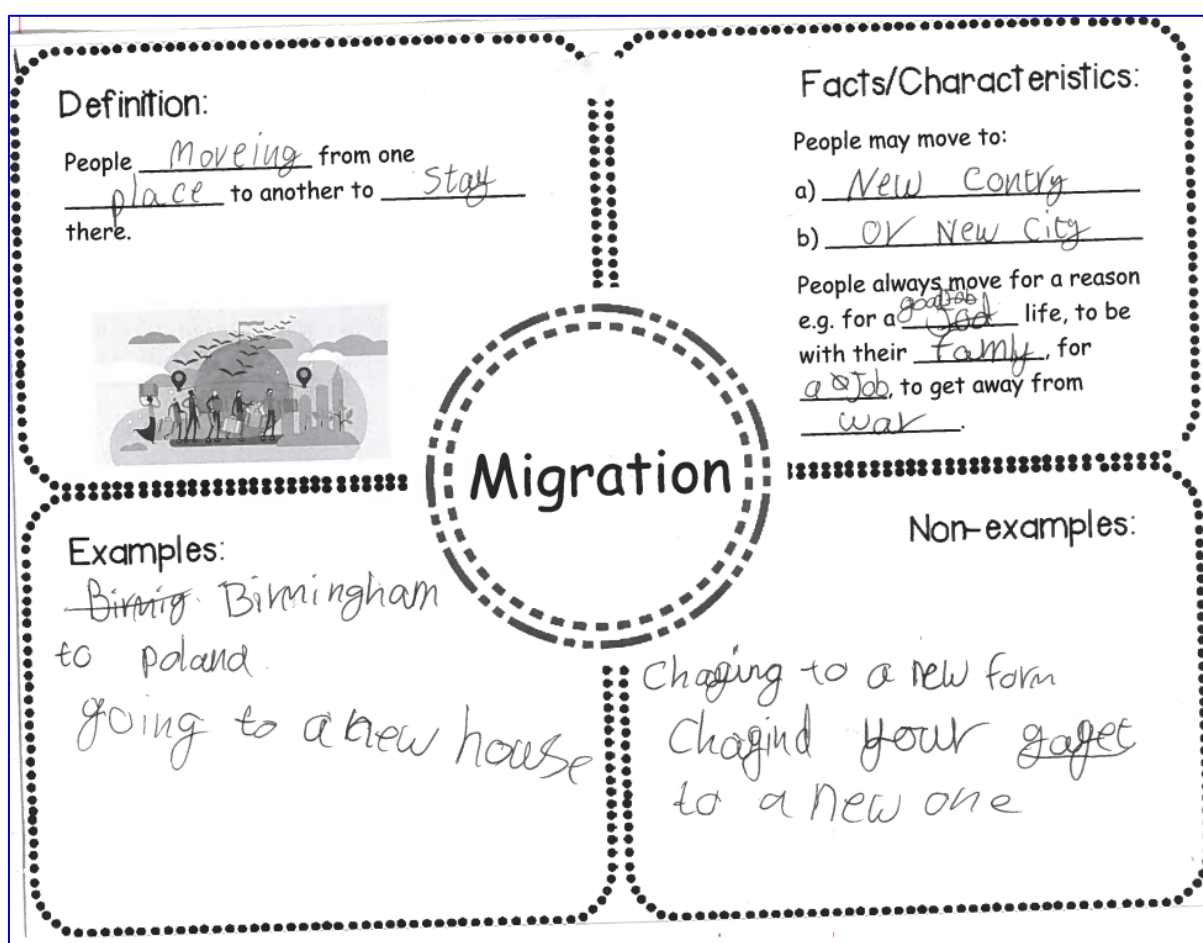 Definition:
People Moveing from one
place to another to stay
there.
Facts/Characteristics:
People may move to:
a) New Contry
b) or New City
People always move for a reason
good Job
e.g. for a life, to be
with their famly, for
a Job, to get away from
war.
Migration
Examples:
Birmig. Birmingham
to poland
going to a new house
Non-examples:
Chaging to a new form
Chagind your gaget
to a new one